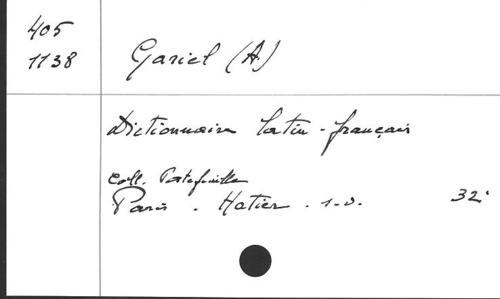 405
1138
Gariel (A)
Dictionnaire latin-français
Coll. Portefeuille
Paris. Hatier. s.d. 32°